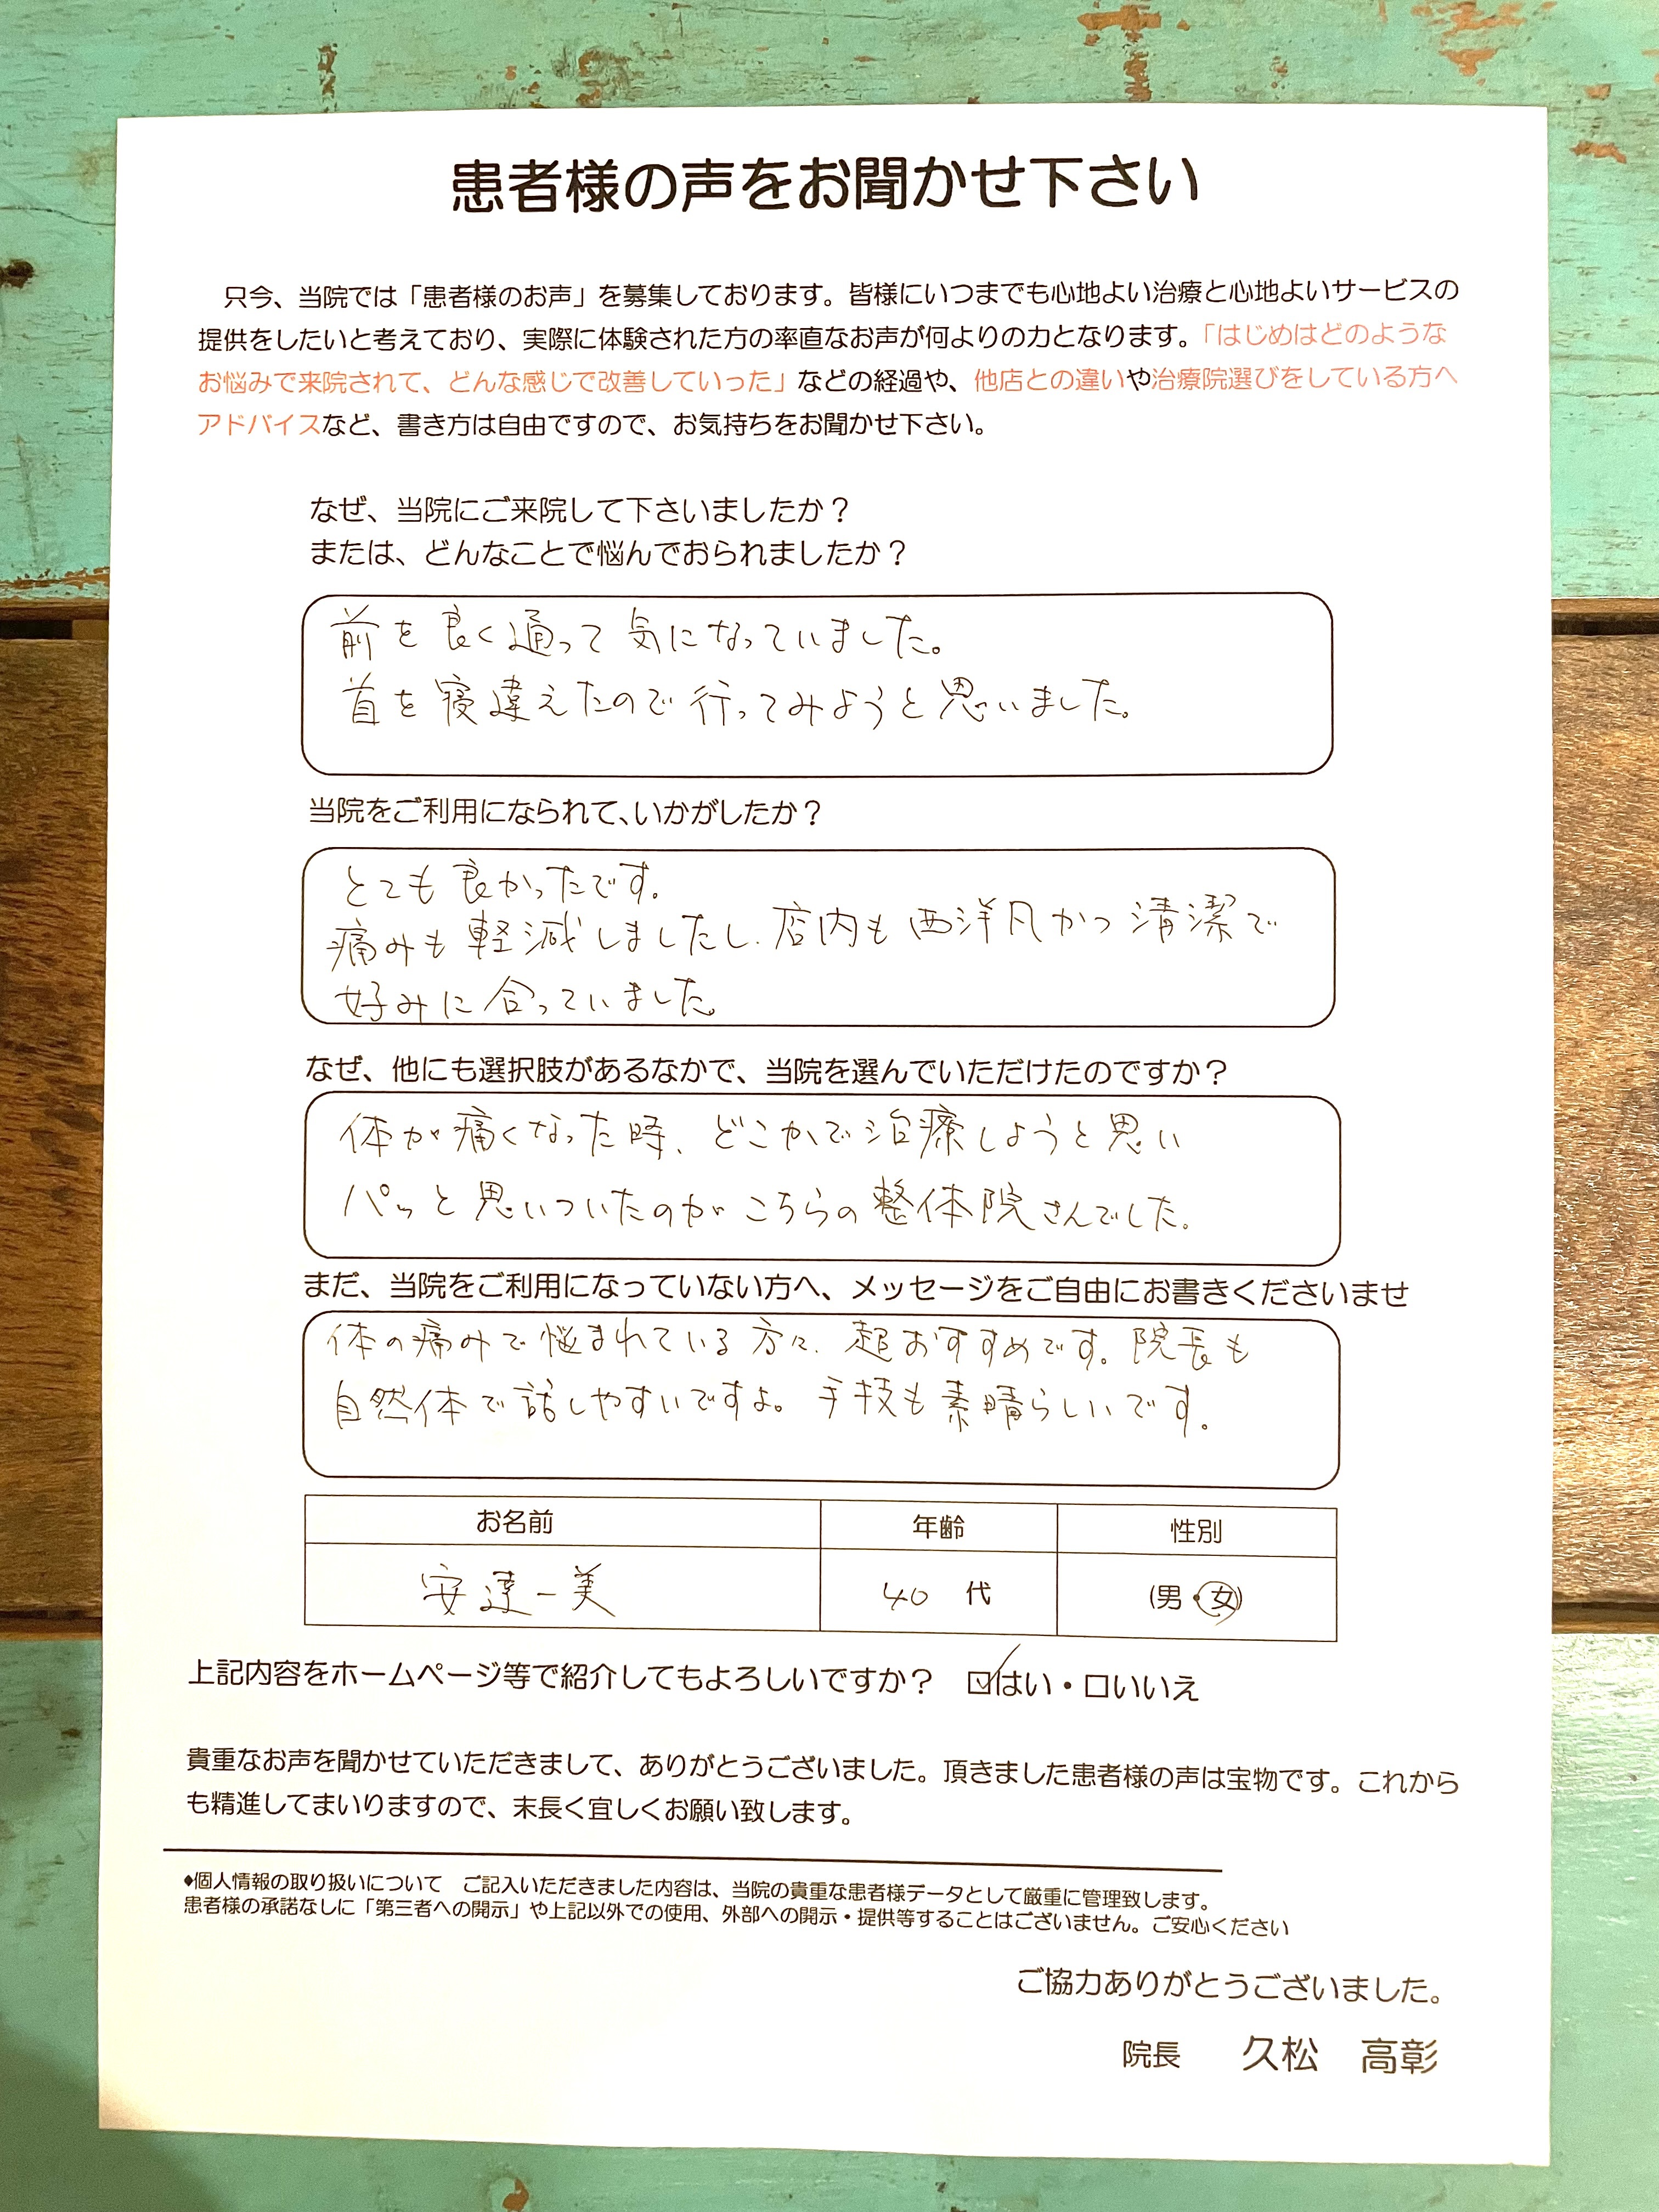 患者様の声をお聞かせ下さい
只今、当院では「患者様のお声」を募集しております。皆様にいつまでも心地よい治療と心地よいサービスの
提供をしたいと考えており、実際に体験された方の率直なお声が何よりの力となります。「はじめはどのような
お悩みで来院されて、どんな感じで改善していった」などの経過や、他店との違いや治療院選びをしている方へ
アドバイスなど、書き方は自由ですので、お気持ちをお聞かせ下さい。
なぜ、当院にご来院して下さいましたか？
または、どんなことで悩んでおられましたか？
前を良く通って気になっていました。
首を寝違えたので行ってみようと思いました。
当院をご利用になられて、いかがしたか？
とても良かったです。
痛みも軽減しましたし、店内も西洋風かつ清潔で
好みに合っていました。
なぜ、他にも選択肢があるなかで、当院を選んでいただけたのですか？
体が痛くなった時、どこかで治療しようと思い
パッと思いついたのがこちらの整体院さんでした。
まだ、当院をご利用になっていない方へ、メッセージをご自由にお書きくださいませ
体の痛みで悩まれている方々、超おすすめです。院長も
自然体で話しやすいですよ。手技も素晴らしいです。
お名前 年齢 性別
安達一美 40 代 (男・女)
上記内容をホームページ等で紹介してもよろしいですか？ ☑はい・□いいえ
貴重なお声を聞かせていただきまして、ありがとうございました。頂きました患者様の声は宝物です。これから
も精進してまいりますので、末長く宜しくお願い致します。
◆個人情報の取り扱いについて ご記入いただきました内容は、当院の貴重な患者様データとして厳重に管理致します。
患者様の承諾なしに「第三者への開示」や上記以外での使用、外部への開示・提供等することはございません。ご安心ください
ご協力ありがとうございました。
院長 久松 高彰